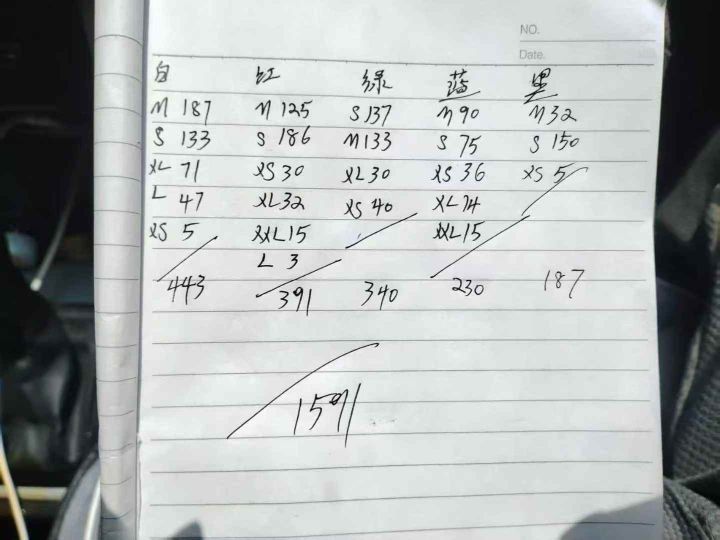 NO.
Date.
白 红 绿 蓝 黑
M 187 M 125 S 137 M 90 M 32
S 133 S 186 M 133 S 75 S 150
XL 71 XS 30 XL 30 XS 36 XS 5
L 47 XL 32 XS 40 XL 14
XS 5 XXL 15 XXL 15
L 3
443 391 340 230 187
1591